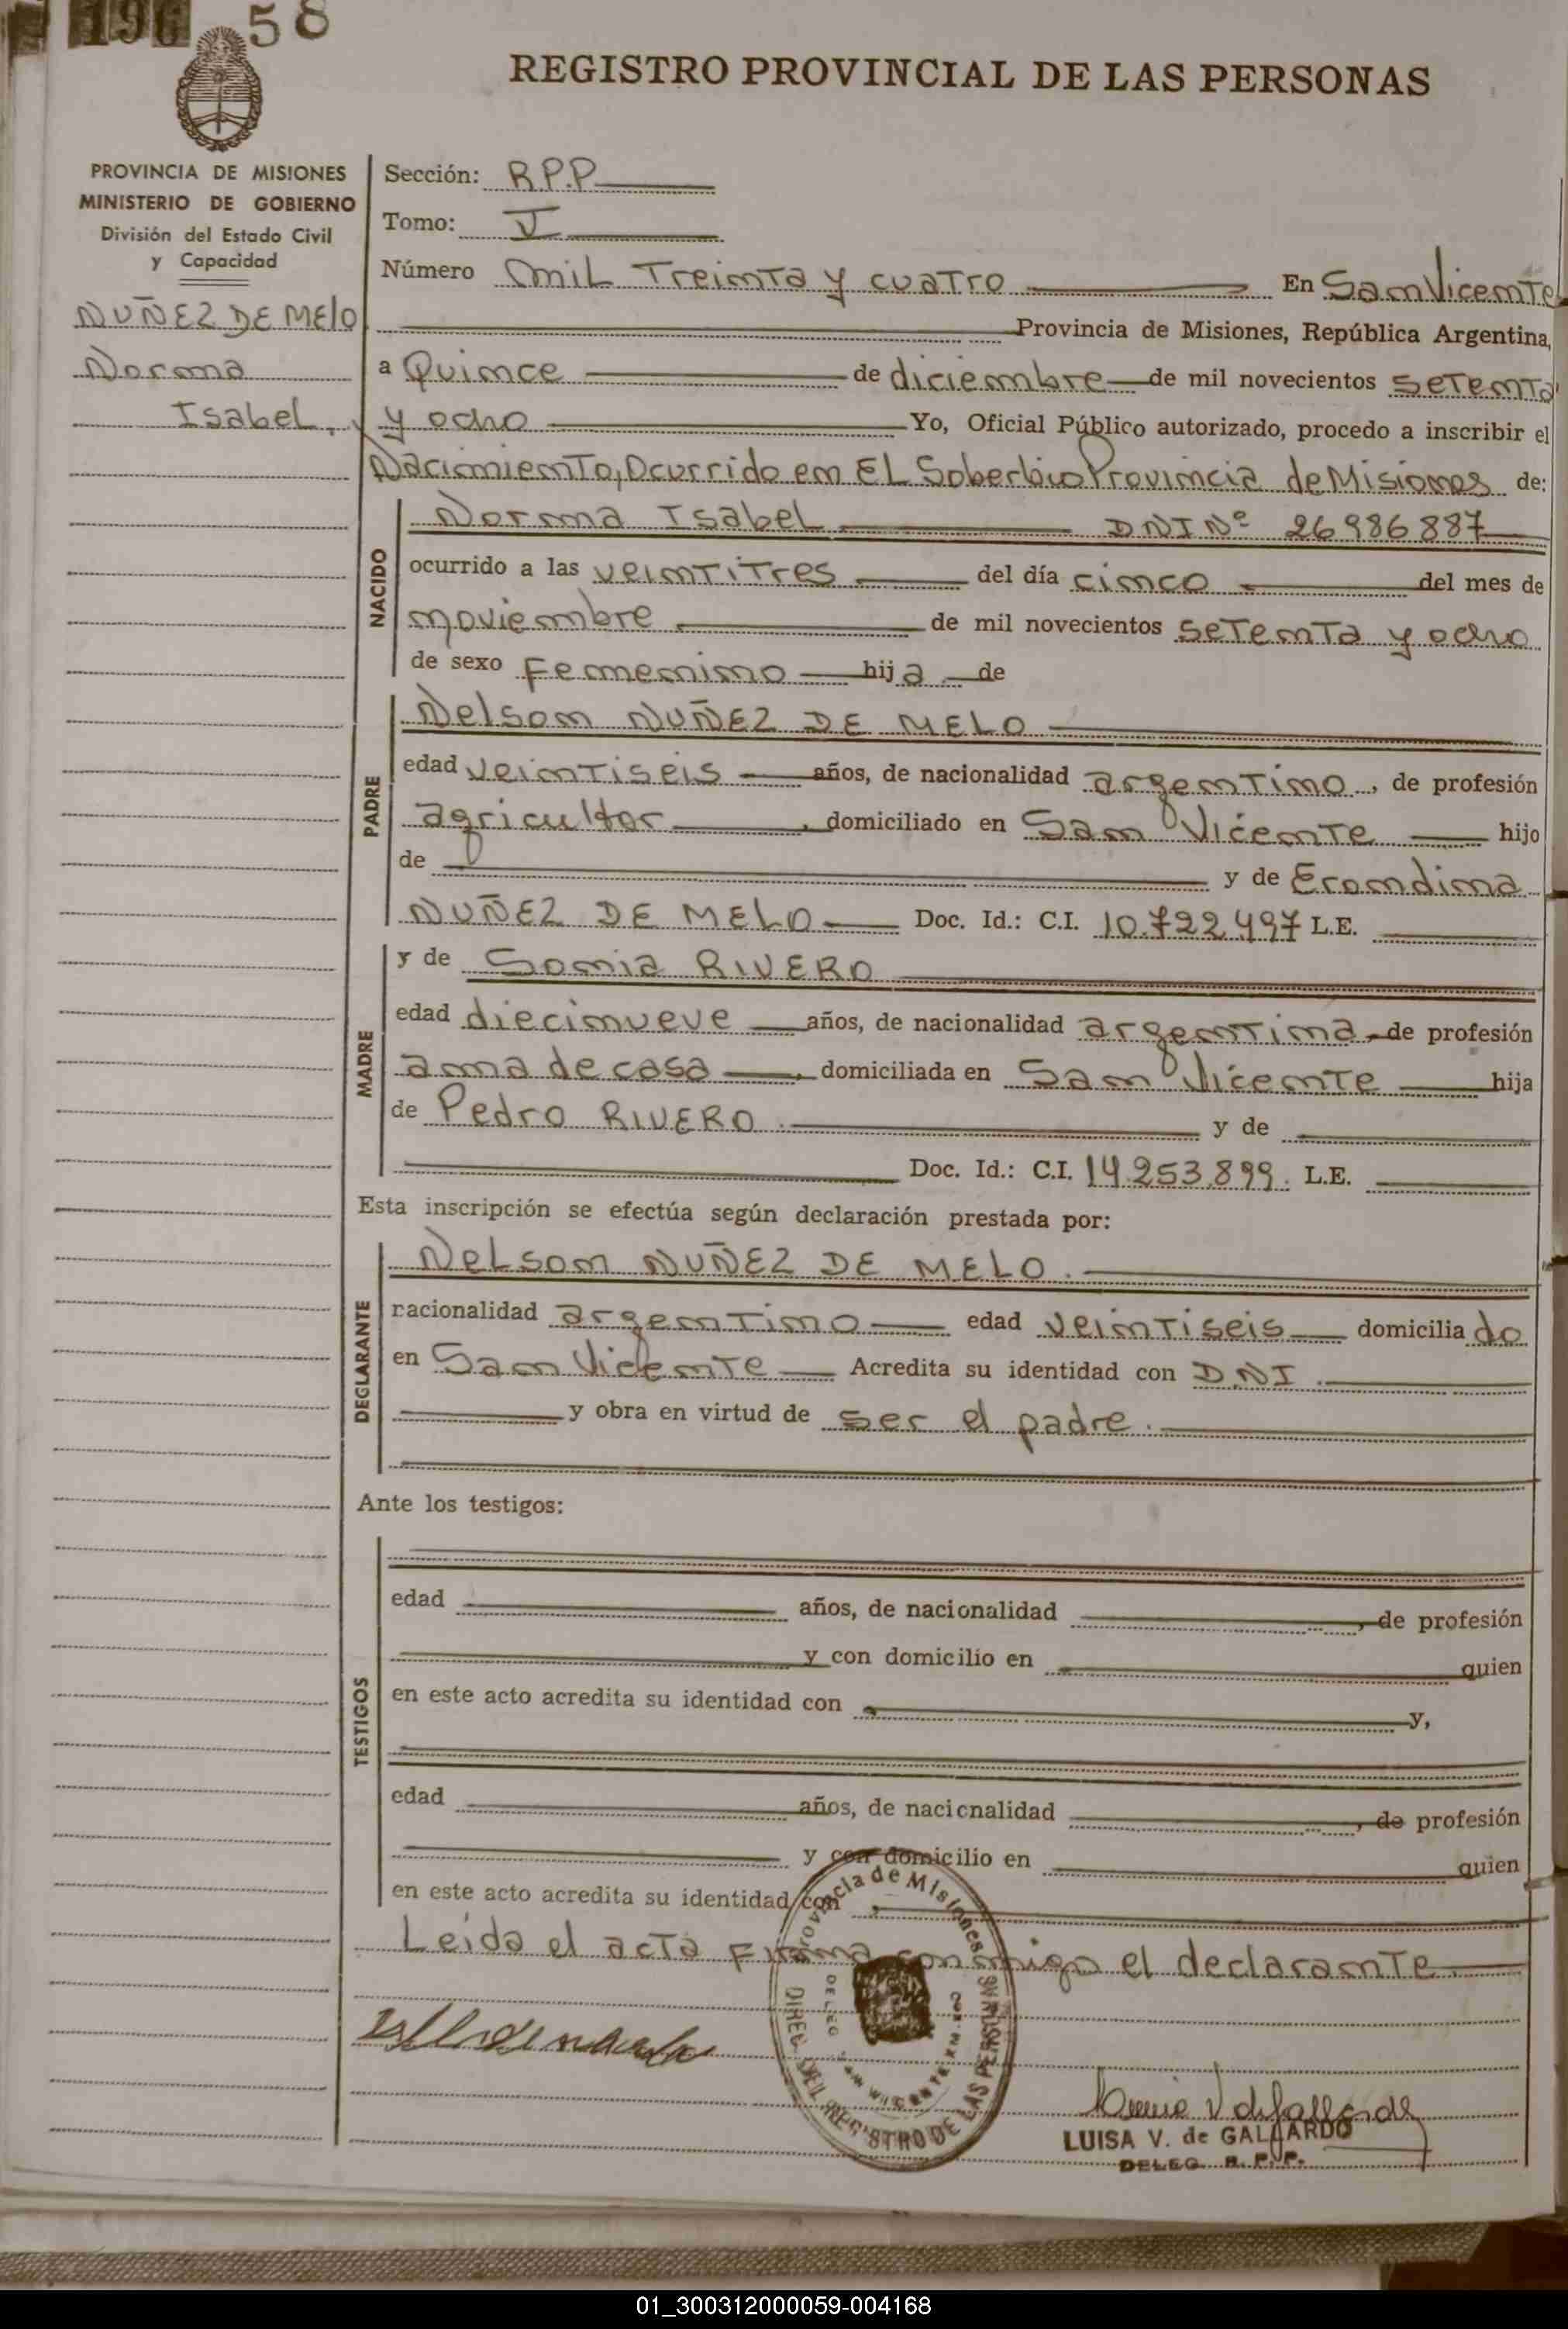 58
REGISTRO PROVINCIAL DE LAS PERSONAS
PROVINCIA DE MISIONES
MINISTERIO DE GOBIERNO
División del Estado Civil
y Capacidad
NUÑEZ DE MELO
Norma
Isabel.
Sección: R.P.P
Tomo: V
Número mil Treinta y cuatro En San Vicente
Provincia de Misiones, República Argentina,
a Quince de diciembre de mil novecientos setenta
y ocho Yo, Oficial Público autorizado, procedo a inscribir el
Nacimiento, Ocurrido en El Soberbio Provincia de Misiones de:
NACIDO
Norma Isabel DNI Nº 26986887
ocurrido a las veintitres del día cinco del mes de
noviembre de mil novecientos setenta y ocho
de sexo femenino hija de
PADRE
Nelson NUÑEZ DE MELO
edad veintiseis años, de nacionalidad argentino, de profesión
agricultor, domiciliado en San Vicente hijo
de y de Erondina
NUÑEZ DE MELO Doc. Id.: C.I. 10.722.497 L.E.
MADRE
y de Sonia RIVERO
edad diecinueve años, de nacionalidad argentina de profesión
ama de casa, domiciliada en San Vicente hija
de Pedro RIVERO. y de
Doc. Id.: C.I. 14.253.899. L.E.
Esta inscripción se efectúa según declaración prestada por:
DECLARANTE
Nelson NUÑEZ DE MELO.
nacionalidad argentino edad veintiseis domiciliado
en San Vicente Acredita su identidad con D.N.I.
y obra en virtud de ser el padre.
Ante los testigos:
TESTIGOS
edad años, de nacionalidad, de profesión
y con domicilio en quien
en este acto acredita su identidad con y,
edad años, de nacionalidad, de profesión
y con domicilio en quien
en este acto acredita su identidad con
Leida el acta firma conmigo el declarante.
Provincia de Misiones
DIREC. DEL REGISTRO DE LAS PERSONAS
LUISA V. de GALLARDO
DELEG. R. P. P.
01_300312000059-004168